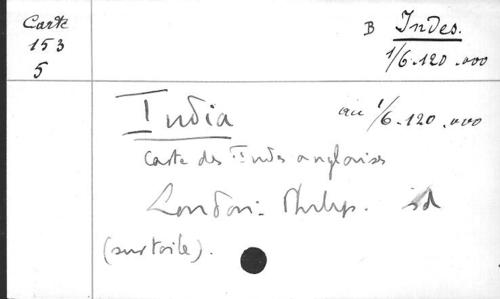 Carte
153
5
B Indes.
1/6.120.000
India
au 1/6.120.000
Carte des Indes anglaises
London: Philip. sd
(sur toile).